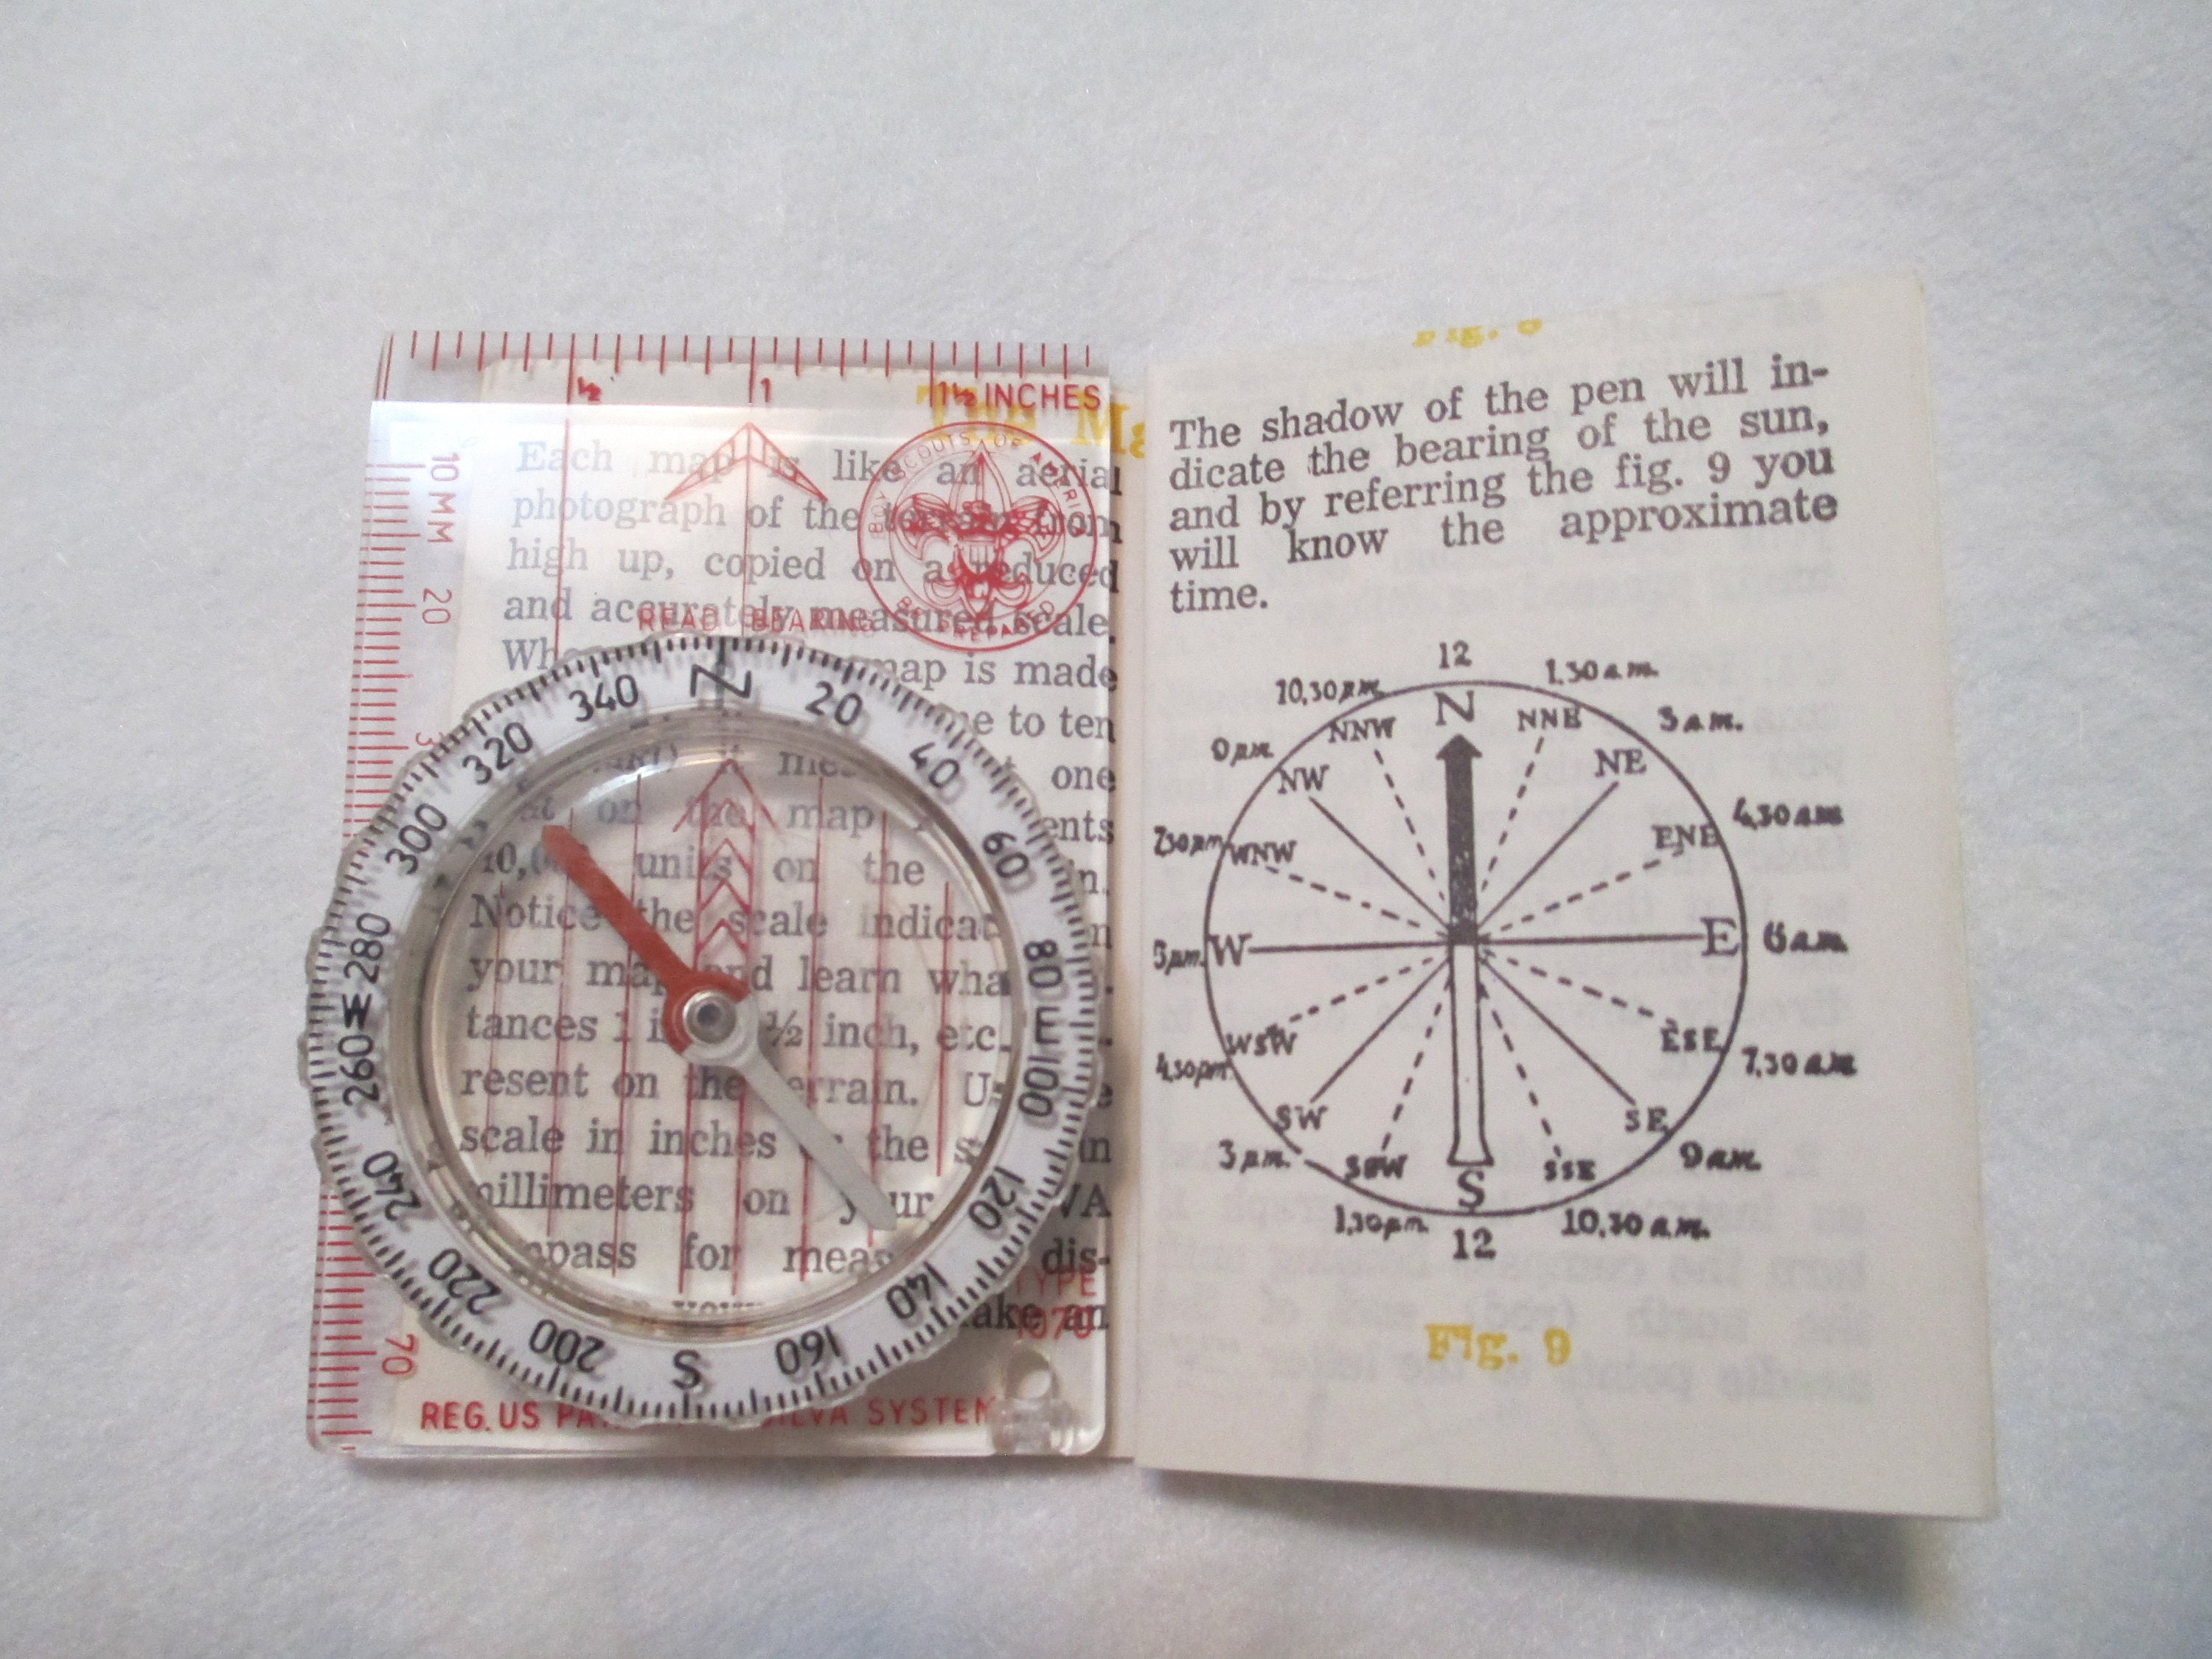 ½ 1 1½ INCHES
The Ma
10 MM 20 3 70
BOY SCOUTS OF AMERICA
BE PREPARED
Each map is like an aerial
photograph of the terrain from
high up, copied on a reduced
and accurately measured scale.
READ BEARING
map is made
to ten
it one
on the map
units on the
Notice the scale indicat
your map and learn wha
tances 1 ½ inch, etc.
resent on the terrain.
scale in inches the
millimeters on your VA
pass for meas dis-
ake an
N 20 40 60 80 E 100 120 140 160 S 200 220 240 260 W 280 300 320 340
TYPE
1070
REG. US PA SILVA SYSTEM
Fig. 8
The shadow of the pen will in-
dicate the bearing of the sun,
and by referring the fig. 9 you
will know the approximate
time.
12
10,30 p.m. 1,30 a.m.
N
NNW NNE
9 p.m. 3 a.m.
NW NE
7,30 p.m. 4,30 a.m.
WNW ENE
W E 6 a.m.
WSW ESE
4,30 p.m. 7,30 a.m.
SW SE
3 p.m. 9 a.m.
SSW SSE
S
1,30 p.m. 10,30 a.m.
12
Fig. 9